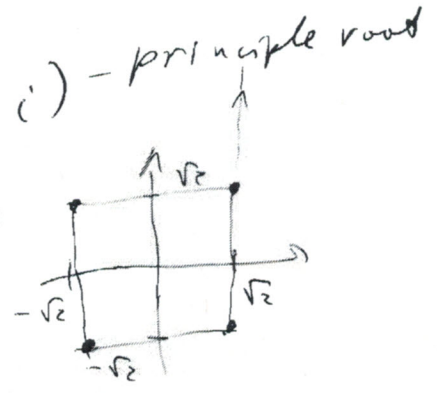 i) - principle root
√2
√2
-√2
-√2